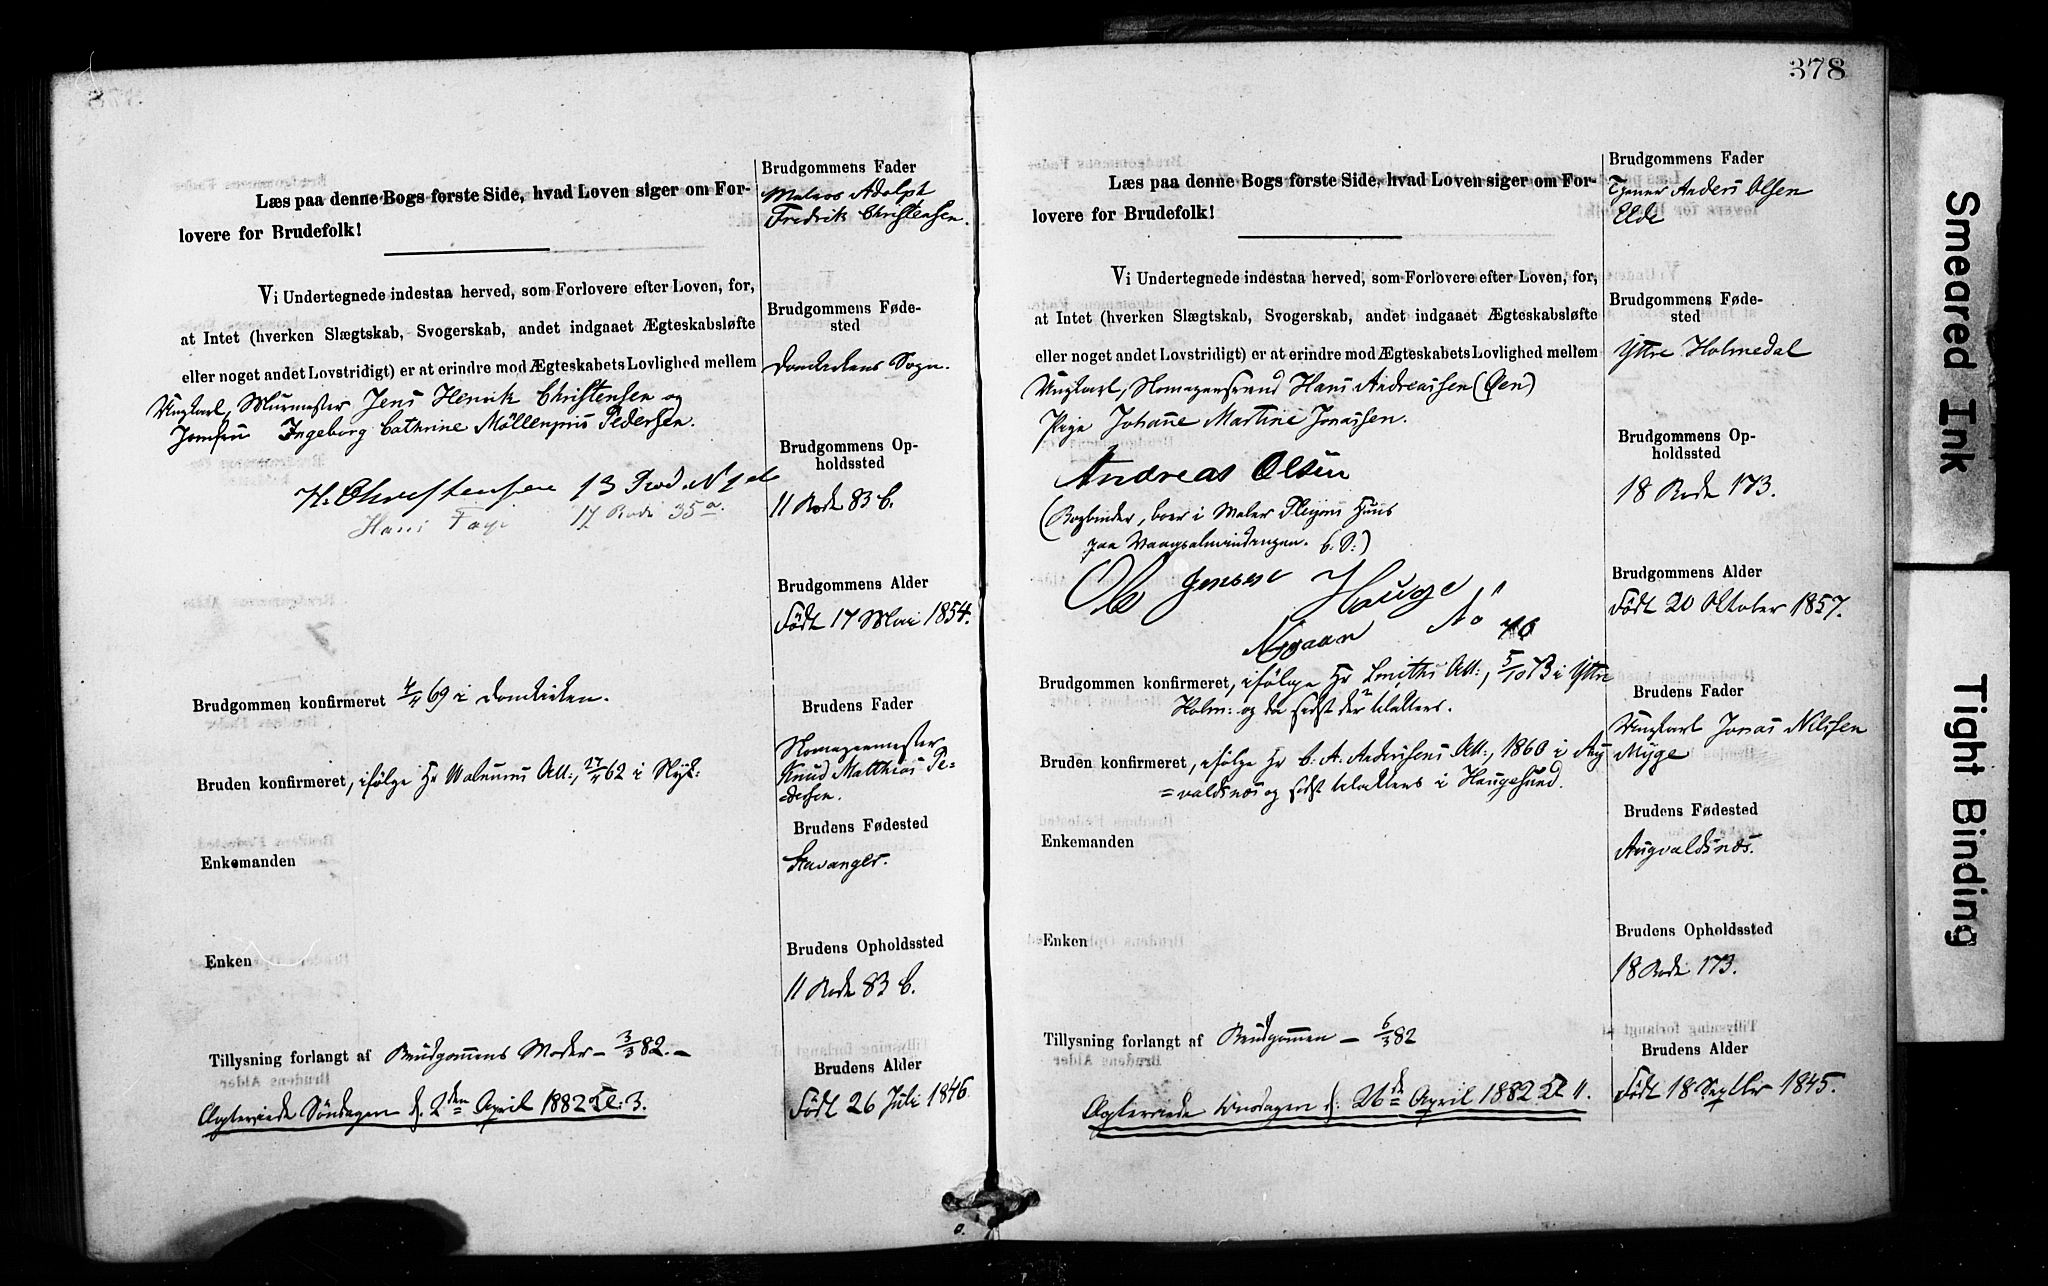 Læs paa denne Bogs første Side, hvad Loven siger om For-
lovere for Brudefolk!
Vi Undertegnede indestaa herved, som Forlovere efter Loven, for,
at Intet (hverken Slægtskab, Svogerskab, andet indgaaet Ægteskabsløfte
eller noget andet Lovstridigt) er at erindre mod Ægteskabets Lovlighed mellem
Ungkarl, Murmester Jens Henrik Christensen og
Jomfru Ingeborg Cathrine Möllenpris Pedersen.
H. Christensen 13 Rod N
Hans 17 Rode 35 a.
Brudgommen konfirmeret 69 i Domkirken.
Bruden konfirmeret, ifölge Hr Att:, 62 i Nyk:
Enkemanden
Enken
Tillysning forlangt af Brudgommens Moder – 3/3 82. –
Ægteviede Söndagen d. 2den April 1882 Kl: 3.
Brudgommens Fader
Matros Adolph
Fredrik Christensen.
Brudgommens Føde-
sted
Domkirkens Sogn.
Brudgommens Op-
holdssted
11 Rode 83 b.
Brudgommens Alder
Födt 17 Mai 1854.
Brudens Fader
Knud Matthias Pe=
dersen.
Brudens Fødested
Stavanger.
Brudens Opholdssted
11 Rode 83 b.
Brudens Alder
Födt 26 Juli 1846
378
Læs paa denne Bogs første Side, hvad Loven siger om For-
lovere for Brudefolk!
Vi Undertegnede indestaa herved, som Forlovere efter Loven, for,
at Intet (hverken Slægtskab, Svogerskab, andet indgaaet Ægteskabsløfte
eller noget andet Lovstridigt) er at erindre mod Ægteskabets Lovlighed mellem
Ungkarl, Hans Andreassen (Øen)
Pige Johanne Martine Jonassen.
Andreas Olsen
(Bogbinder, boer i Maler Huus
paa Vaagsalmindingen.
Ole Jensen Hauge
Nygaar No
Brudgommen konfirmeret, ifölge Hr Att:, 5/10 73 i Yttre
Holm: og da sidst der til Alters.
Bruden konfirmeret, ifölge Hr C. A. Andersens Att:, 1860 i Aug
=valdsnæs og sidst til Alters i Haugesund.
Enkemanden
Enken
Tillysning forlangt af Brudgommen – 6/3 82
Ægteviede Onsdagen d: 26de April 1882 Kl 11.
Brudgommens Fader
Tjener Anders Olsen
Elde
Brudgommens Føde-
sted
Yttre Holmedal
Brudgommens Op-
holdssted
18 Rode 173.
Brudgommens Alder
Födt 20 Oktober 1857.
Brudens Fader
Ungkarl Jonas Nilssen
Myge
Brudens Fødested
Augvaldsnæs.
Brudens Opholdssted
18 Rode 173.
Brudens Alder
Födt 18 Septbr 1845.
Smeared Ink
Tight Binding